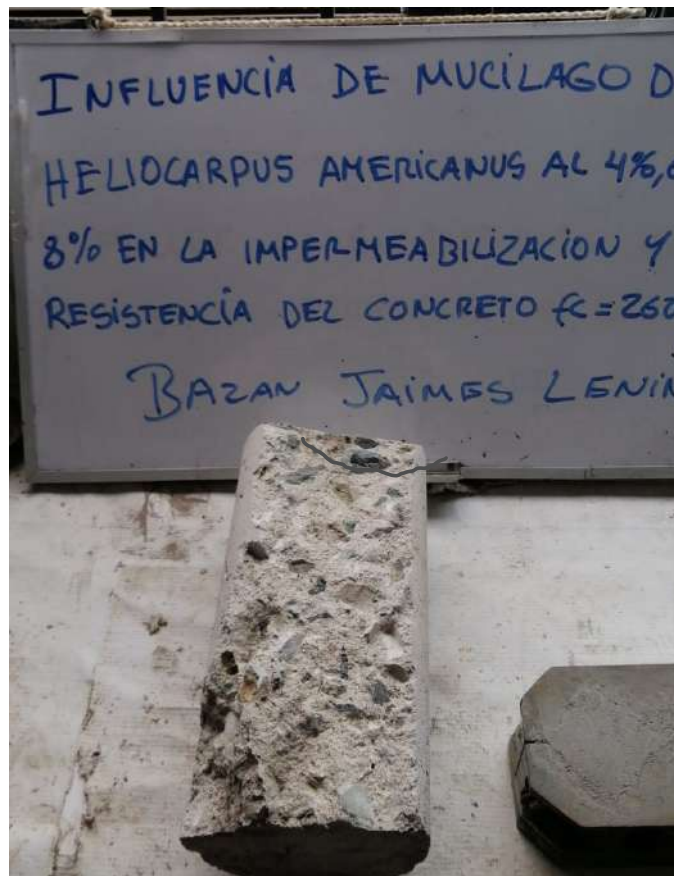 INFLUENCIA DE MUCILAGO D
HELIOCARPUS AMERICANUS AL 4%,
8% EN LA IMPERMEABILIZACION Y
RESISTENCIA DEL CONCRETO fc = 262
BAZAN JAIMES LENIN